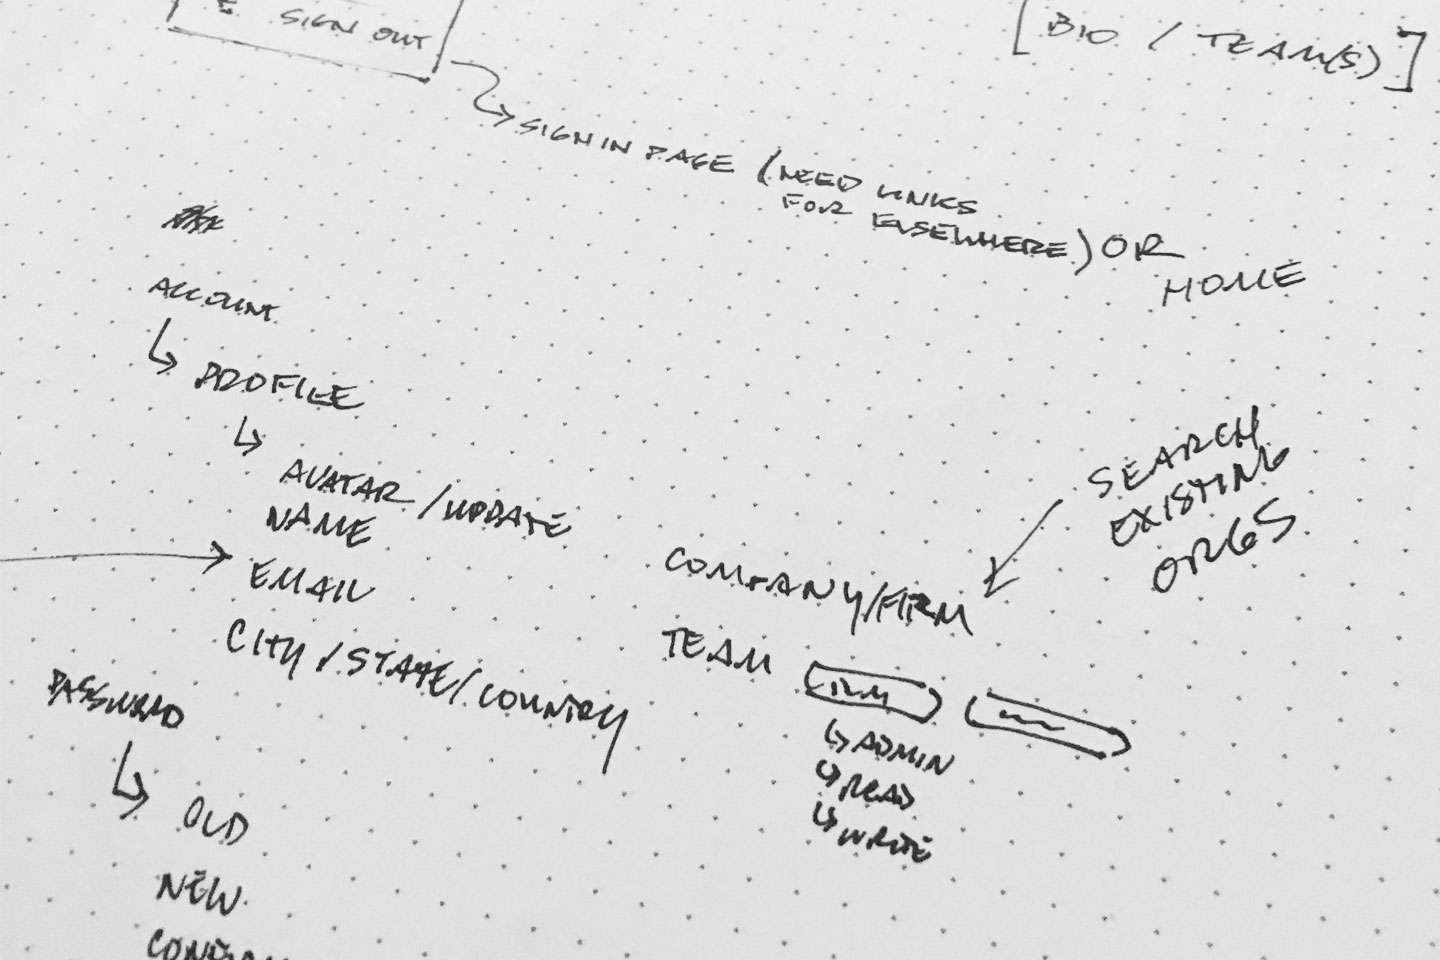 SIGN OUT
[BIO / TEAM(S)]
SIGN IN PAGE (NEED LINKS
FOR ELSEWHERE) OR
HOME
ACCOUNT
PROFILE
AVATAR / UPDATE
NAME
EMAIL
CITY / STATE / COUNTRY
PASSWORD
OLD
NEW
SEARCH
EXISTING
ORGS
COMPANY/FIRM
TEAM
ADMIN
READ
WRITE